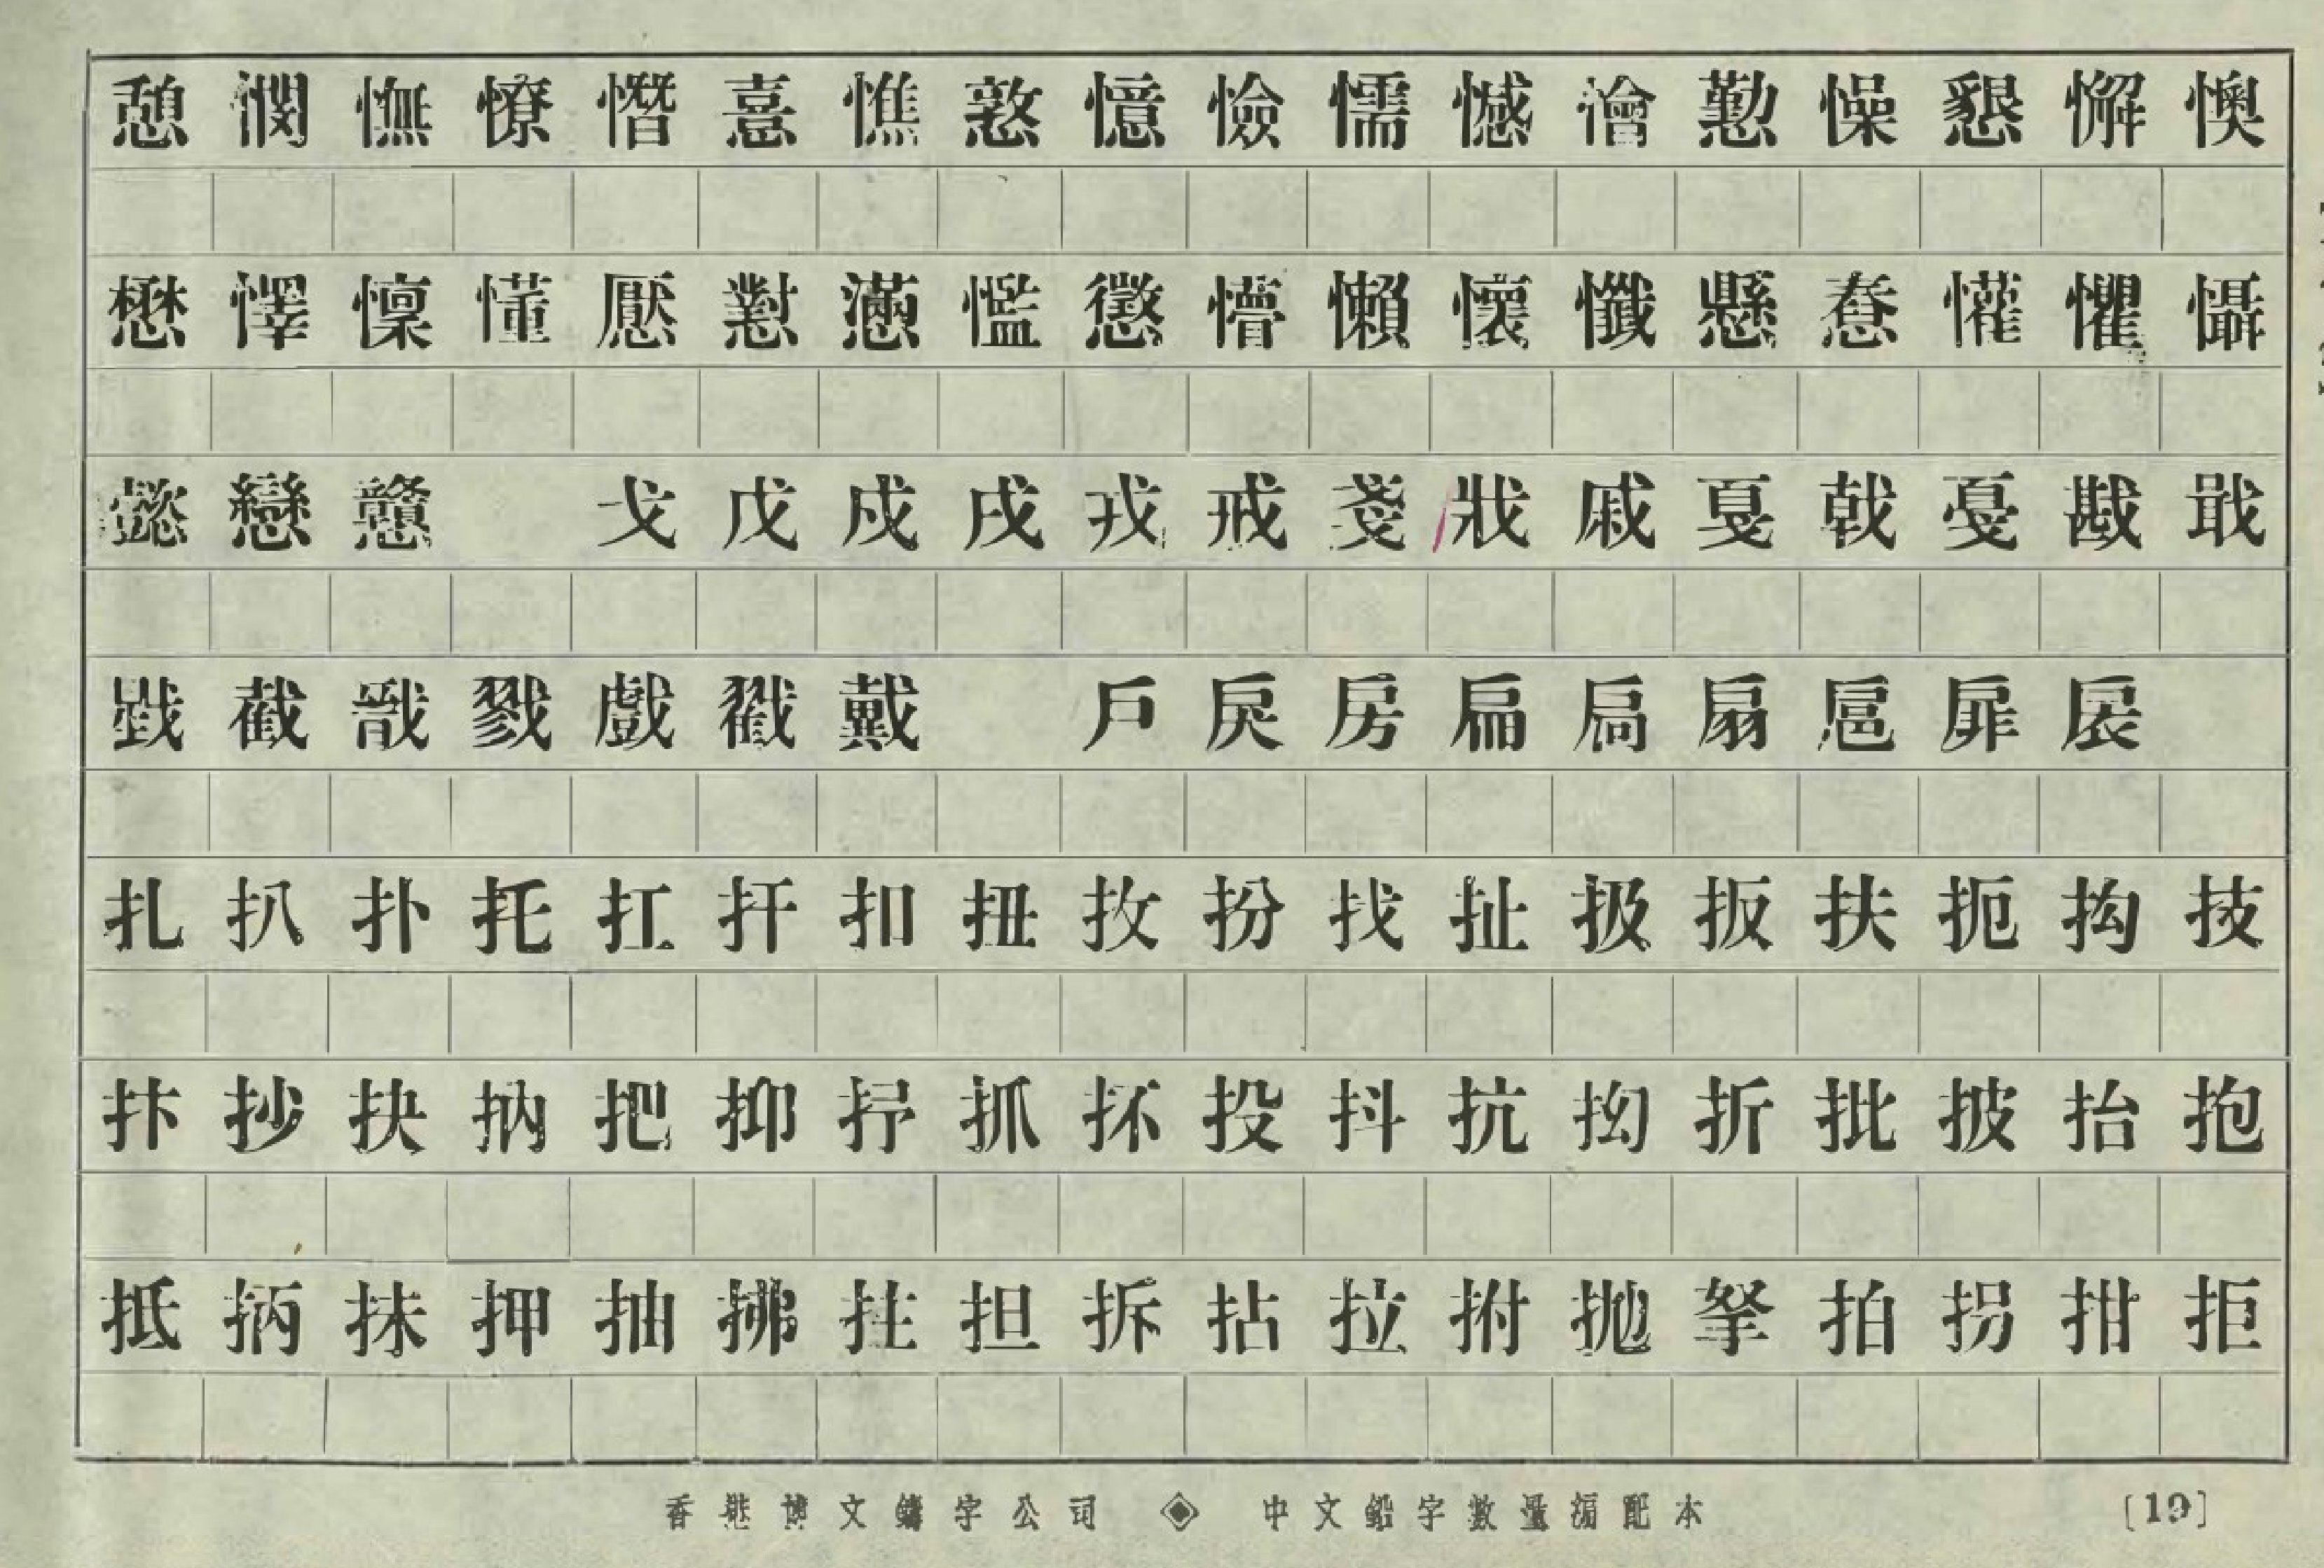 憩憫憮憭憯憙憔憝憶憸懦憾懀懃懆懇懈懊
懋懌懍懂懕懟懣懢懲懵懶懷懺懸惷懽懼懾
懿戀戇 戈戊戍戌戎戒戔戕戚戛戟戞戡戢
戥截戠戮戲戳戴 戶戾房扁扃扇扈扉扆
扎扒扑托扛扞扣扭扻扮找扯扱扳扶扼抅技
抃抄抉抐把抑抒抓抔投抖抗抝折批披抬抱
抵抦抹押抽拂拄担拆拈拉拊拋拏拍拐拑拒
香港博文鑄字公司 ◈ 中文鉛字數量編配本 [19]